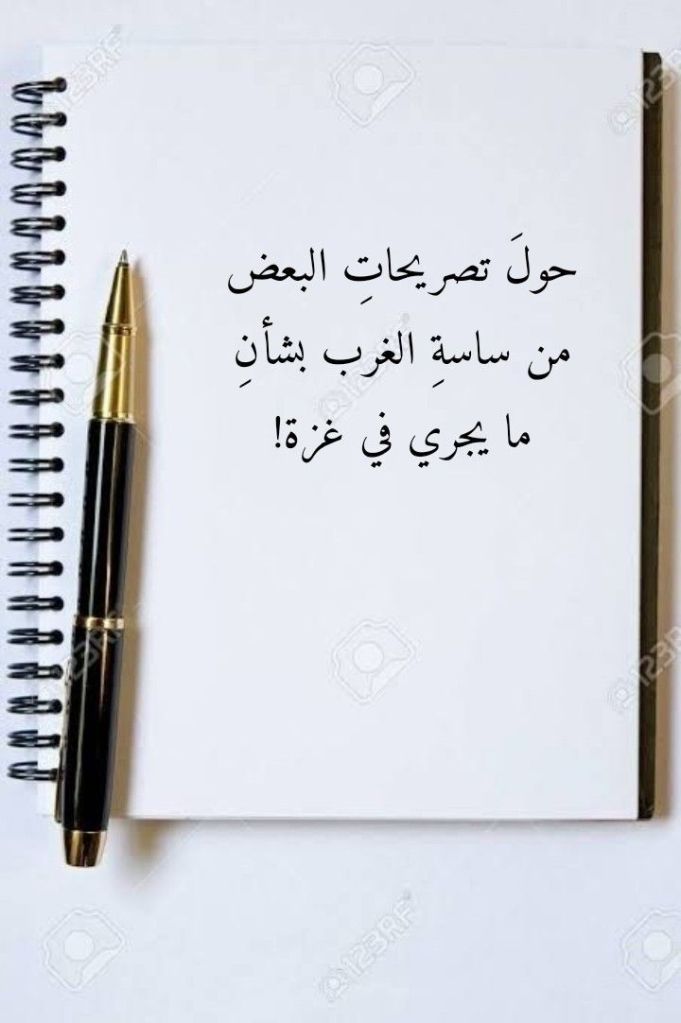 حولَ تصريحاتِ البعض
من ساسةِ الغرب بشأنِ
ما يجري في غزة!
123RF
123RF
123RF
123RF
123RF
123RF
123RF